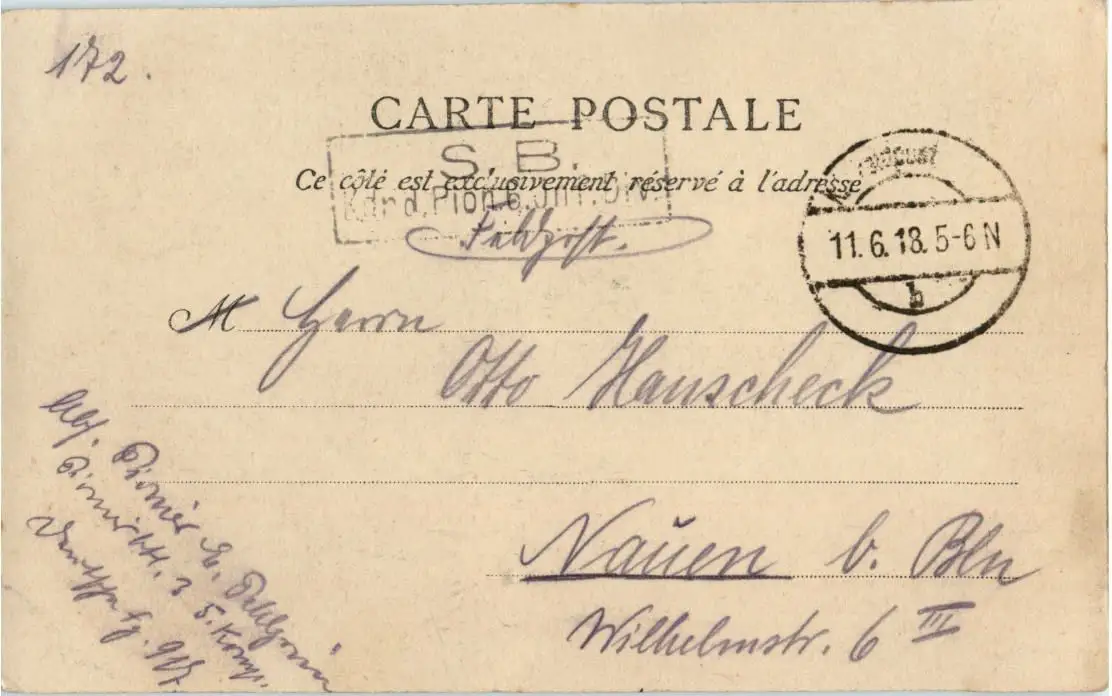 172.
CARTE POSTALE
S. B.
Ce côté est exclusivement réservé à l'adresse
Kdr. d. Pion. 6. Inf. Div.
Feldpost.
11.6.18.5-6 N
b
M Herrn
Otto Hanscheck
Nauen b. Bln
Wilhelmstr. 6 III
Abs. Pionier
5. Komp.